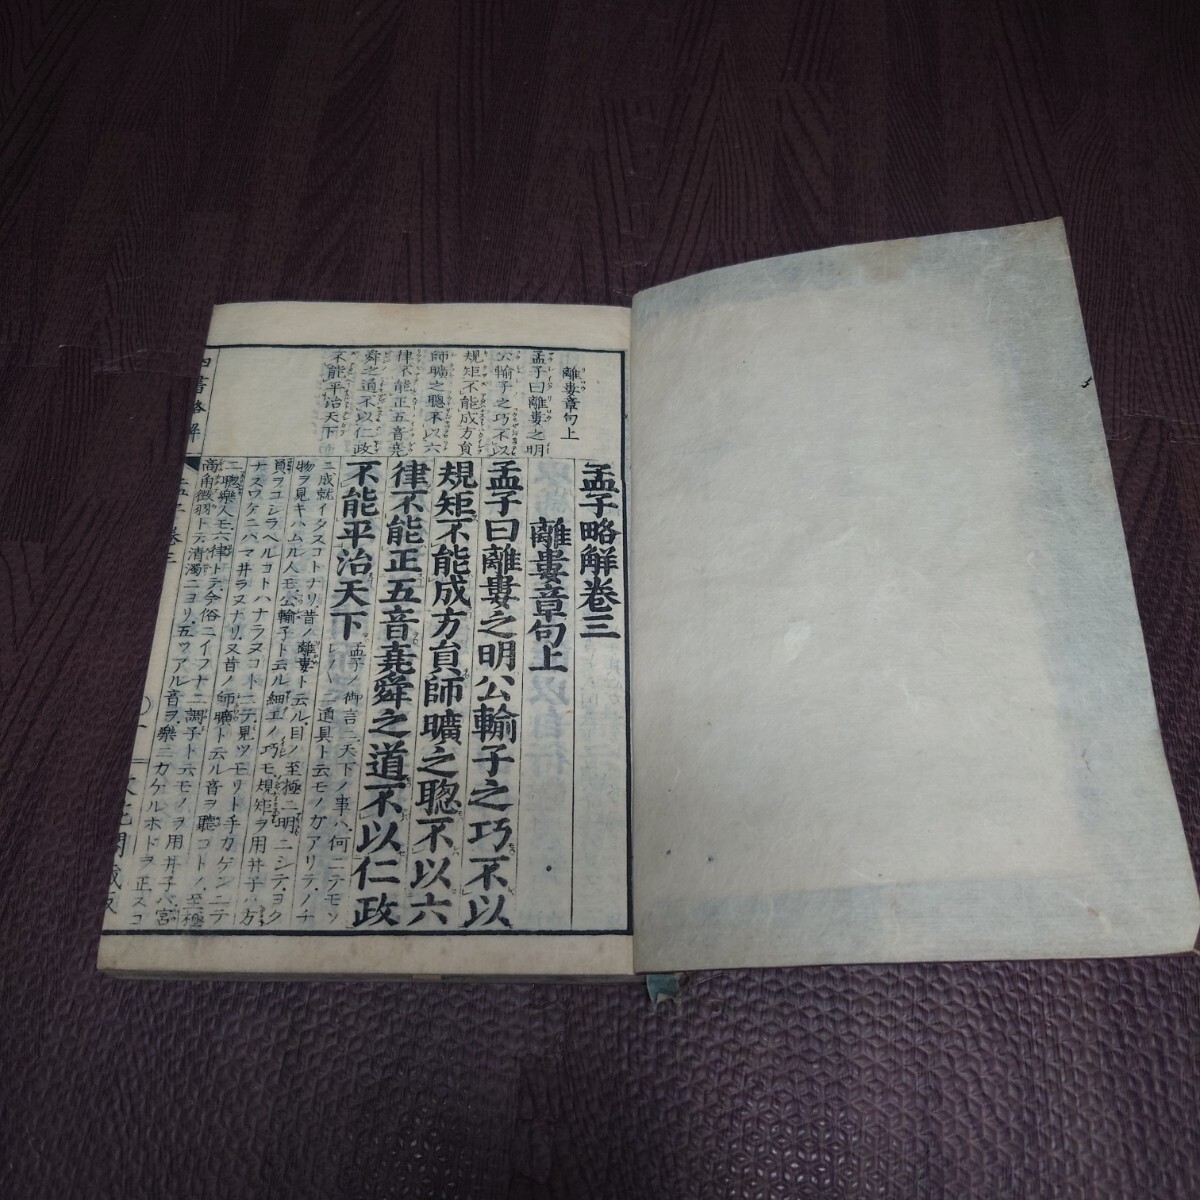 離婁章句上
孟子曰離婁之明
公輸子之巧不以
規矩不能成方員
師曠之聰不以六
律不能正五音堯
舜之道不以仁政
不能平治天下
孟子略解卷三
離婁章句上
孟子曰離婁之明公輸子之巧不以
規矩不能成方員師曠之聰不以六
律不能正五音堯舜之道不以仁政
不能平治天下 孟子ノ御言ニ天下ノ事ハ何ニテモソ
レ〳〵ニ道具ト云モノガアリテノチ
ニ成就イタスコトナリ昔ノ離婁ト云ル目ノ至極ニ明ニシテヨク
物ヲ見キハムル人モ公輸子ト云ル細工ノ巧モ規矩ヲ用井子ハ方
員ヲコシラヘルコトハナラヌコトニテ見ツモリト手カゲンニテ
ナスワケニハマ井ラヌナリ又昔ノ師曠ト云ル音ヲ聽コトノ至極
ニ聰樂人モ六律トテ今俗ニイフナ二調子ト云モノヲ用井子バ宮
商角徴羽トテ清濁ニヨリ五ツアル音ヲ樂ニカケルホドヲ正スコ
四書略解
孟子 卷三